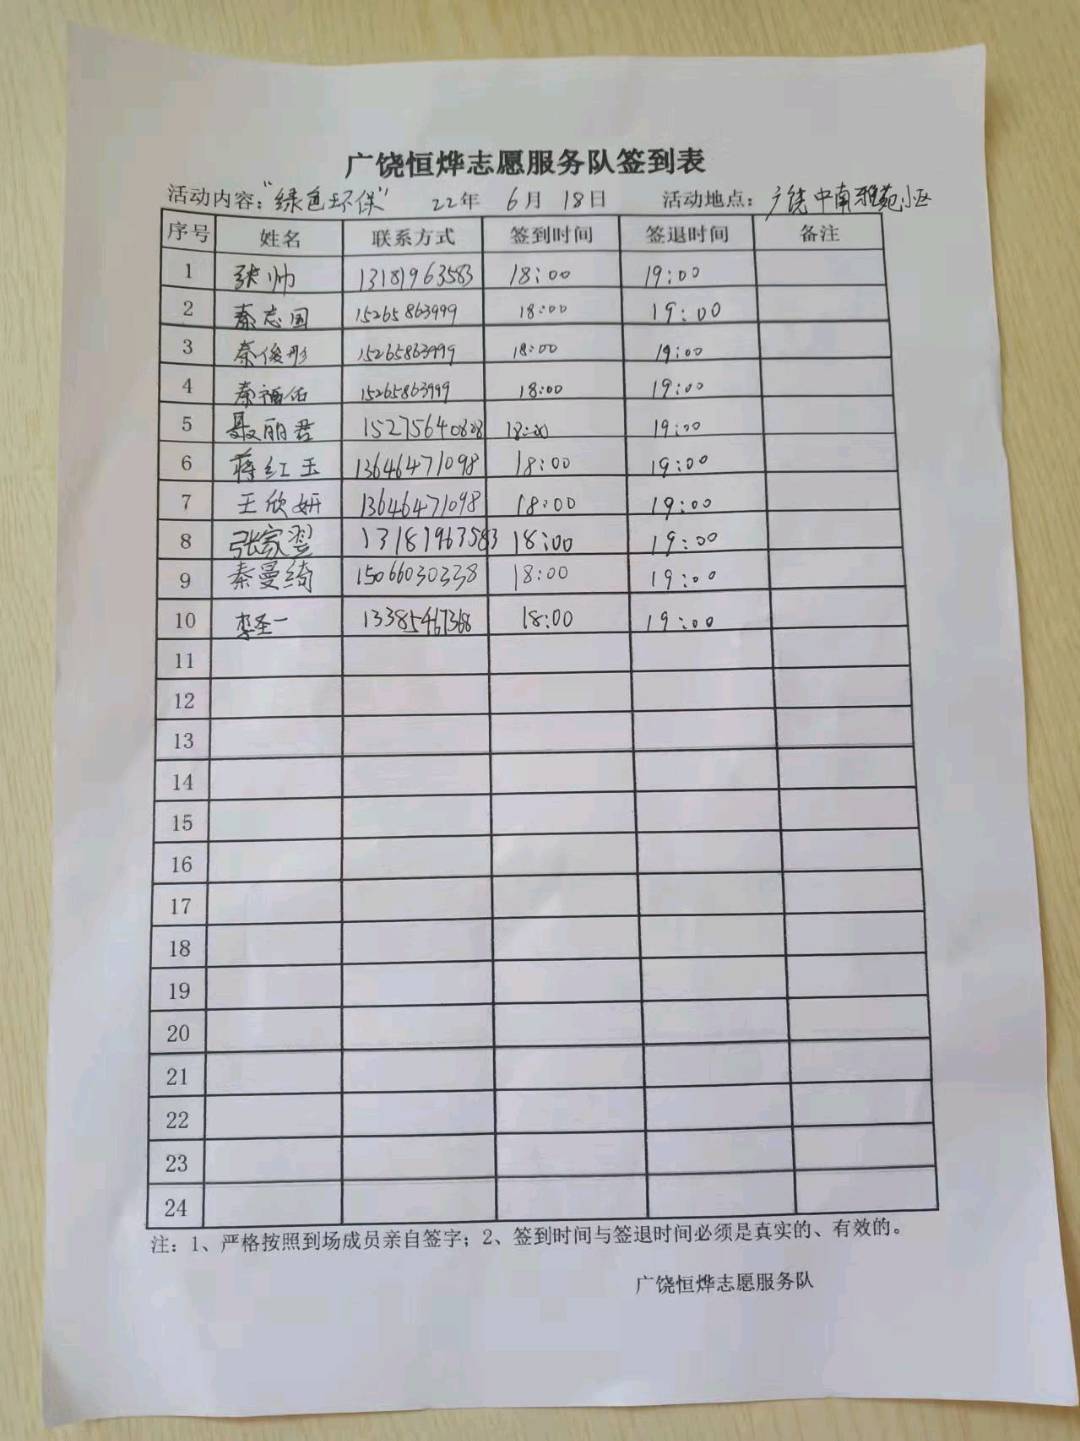 广饶恒烨志愿服务队签到表
活动内容:“绿色环保” 22年 6月 18日 活动地点:广饶中南雅苑小区
序号 姓名 联系方式 签到时间 签退时间 备注
1 张帅 13181963583 18:00 19:00
2 秦志国 15265863999 18:00 19:00
3 秦俊彤 15265863999 18:00 19:00
4 秦福佑 15265863999 18:00 19:00
5 聂丽君 15275640828 18:00 19:00
6 蒋红玉 13646471098 18:00 19:00
7 王欣妍 13646471098 18:00 19:00
8 张家翌 13181963583 18:00 19:00
9 秦曼绮 15066030338 18:00 19:00
10 李圣一 13385467368 18:00 19:00
11
12
13
14
15
16
17
18
19
20
21
22
23
24
注:1、严格按照到场成员亲自签字;2、签到时间与签退时间必须是真实的、有效的。
广饶恒烨志愿服务队